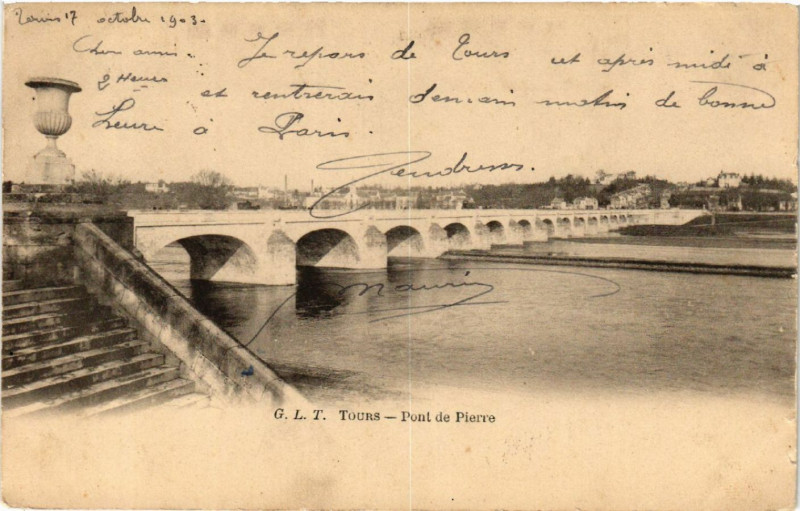 Tours 17 octobre 1903.
Je repars de Tours et après midi à
2 Heures et rentrerais demain matin de bonne
heure à Paris.
Tendresses.
Maurice
G. L. T. TOURS — Pont de Pierre